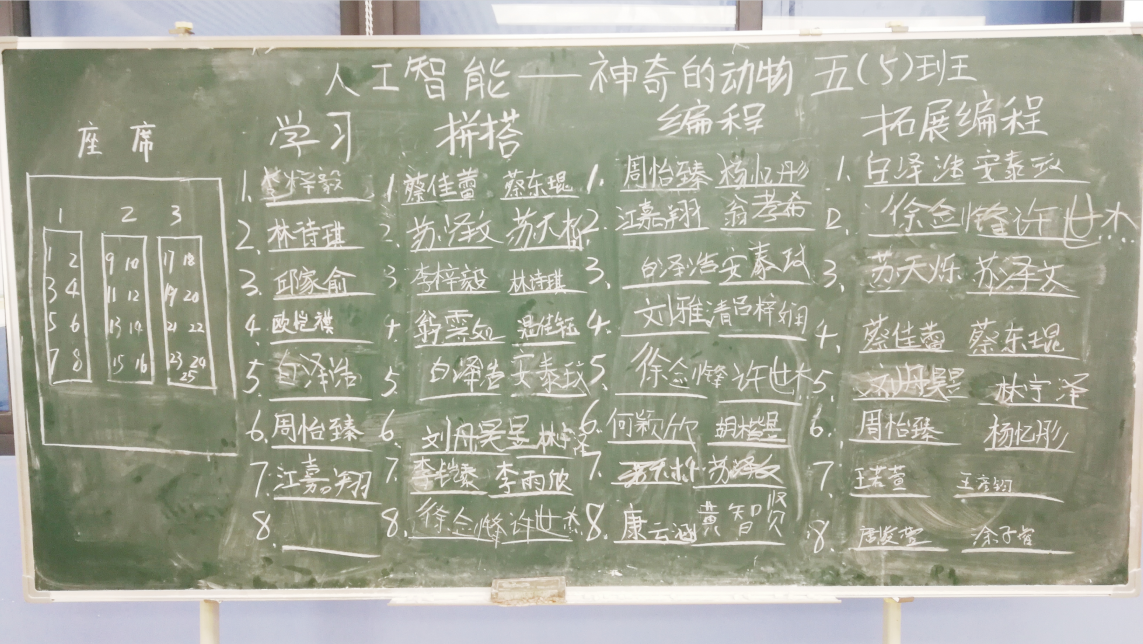 人工智能——神奇的动物 五(5)班
座席
1 2 3
1 2 9 10 17 18
3 4 11 12 19 20
5 6 13 14 21 22
7 8 15 16 23 24
25
学习
1. 李梓毅
2. 林诗琪
3. 邱家俞
4. 欧铠祺
5. 白泽浩
6. 周怡臻
7. 江嘉翔
8.
拼搭
1. 蔡佳蕾 蔡东琨
2. 苏泽文 苏天烁
3 李梓毅 林诗琪
4 翁雲
5 白泽浩 安泰
6. 刘丹昊昱 林宇泽
7. 李 李雨欣
8. 徐剑烽 许世杰
编程
1. 周怡臻 杨忆彤
2. 江嘉翔 翁孝希
3. 白泽浩 安泰
4. 刘雅清 吕梓娴
5. 徐剑烽 许世杰
6. 何颖欣 胡
7. 苏天烁 苏泽文
8. 康云涵 黄智贤
拓展编程
1. 白泽浩 安泰
2. 徐剑烽 许世杰
3. 苏天烁 苏泽文
4. 蔡佳蕾 蔡东琨
5. 刘丹昊昱 林宇泽
6. 周怡臻 杨忆彤
7 王若萱 王
8.